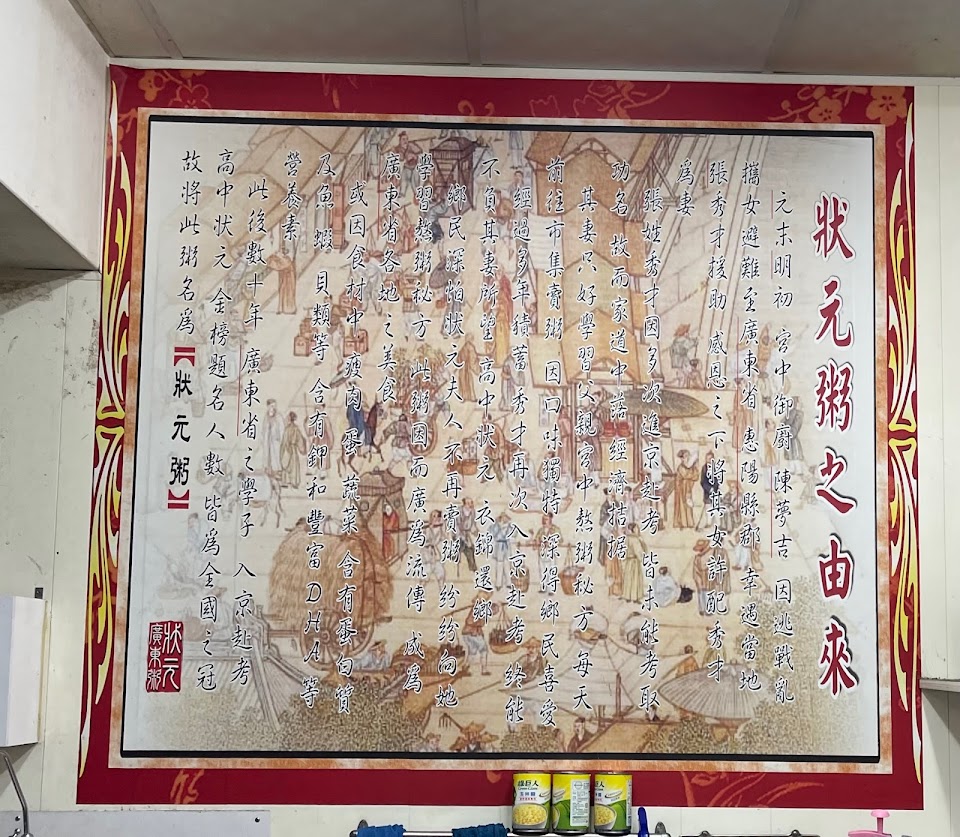 狀元粥之由來
元末明初 宮中御廚 陳夢吉 因逃戰亂
攜女避難至廣東省 惠陽縣郡 幸遇當地
張秀才援助 感恩之下將其女許配秀才
為妻
張姓秀才因多次進京赴考 皆未能考取
功名 故而家道中落 經濟拮据
其妻只好學習父親宮中熬粥秘方 每天
前往市集賣粥 因口味獨特 深得鄉民喜愛
經過多年積蓄 秀才再次入京赴考 終能
不負其妻所望 高中狀元 衣錦還鄉
鄉民深怕狀元夫人不再賣粥 紛紛向她
學習熬粥秘方 此粥因而廣為流傳 成為
廣東省各地之美食
或因食材中 瘦肉 蛋 蔬菜 含有蛋白質
及魚 蝦 貝類等 含有鉀和豐富DHA等
營養素
此後數十年 廣東省之學子 入京赴考
高中狀元 金榜題名人數 皆為全國之冠
故將此粥名為【狀元粥】
狀元
廣東粥
綠巨人
玉米粒